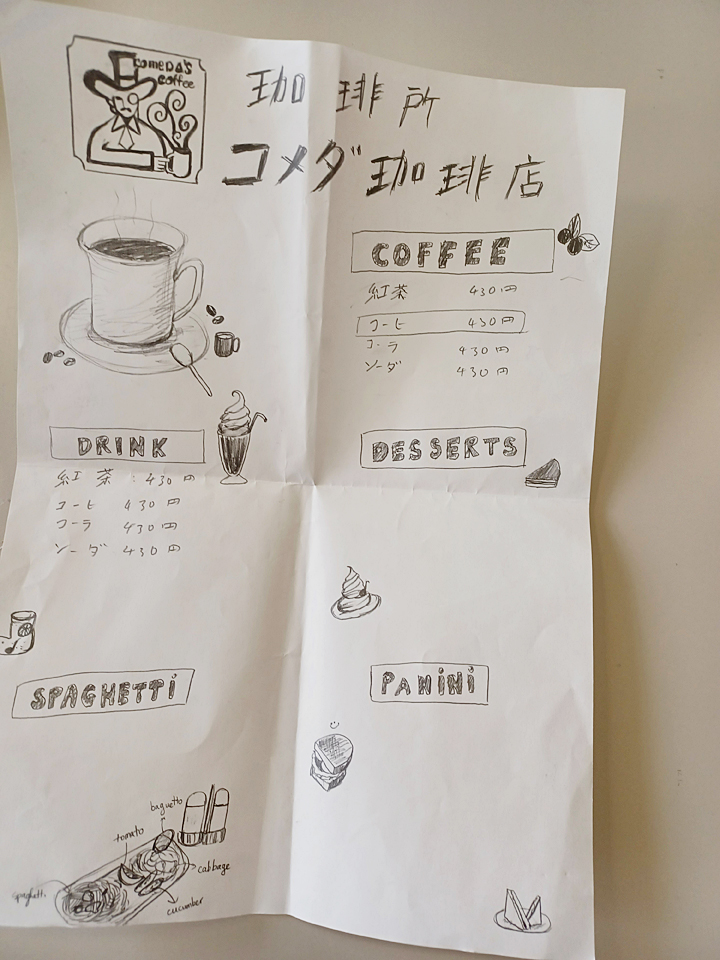 COMEDA'S
coffee
珈琲所
コメダ珈琲店
COFFEE
紅茶 430円
コーヒ 430円
コーラ 430円
ソーダ 430円
DRINK
紅茶 : 430円
コーヒ 430円
コーラ 430円
ソーダ 430円
DESSERTS
SPAGHETTi
PANiNi
baguette
tomato
cabbage
spaghetti
cucumber